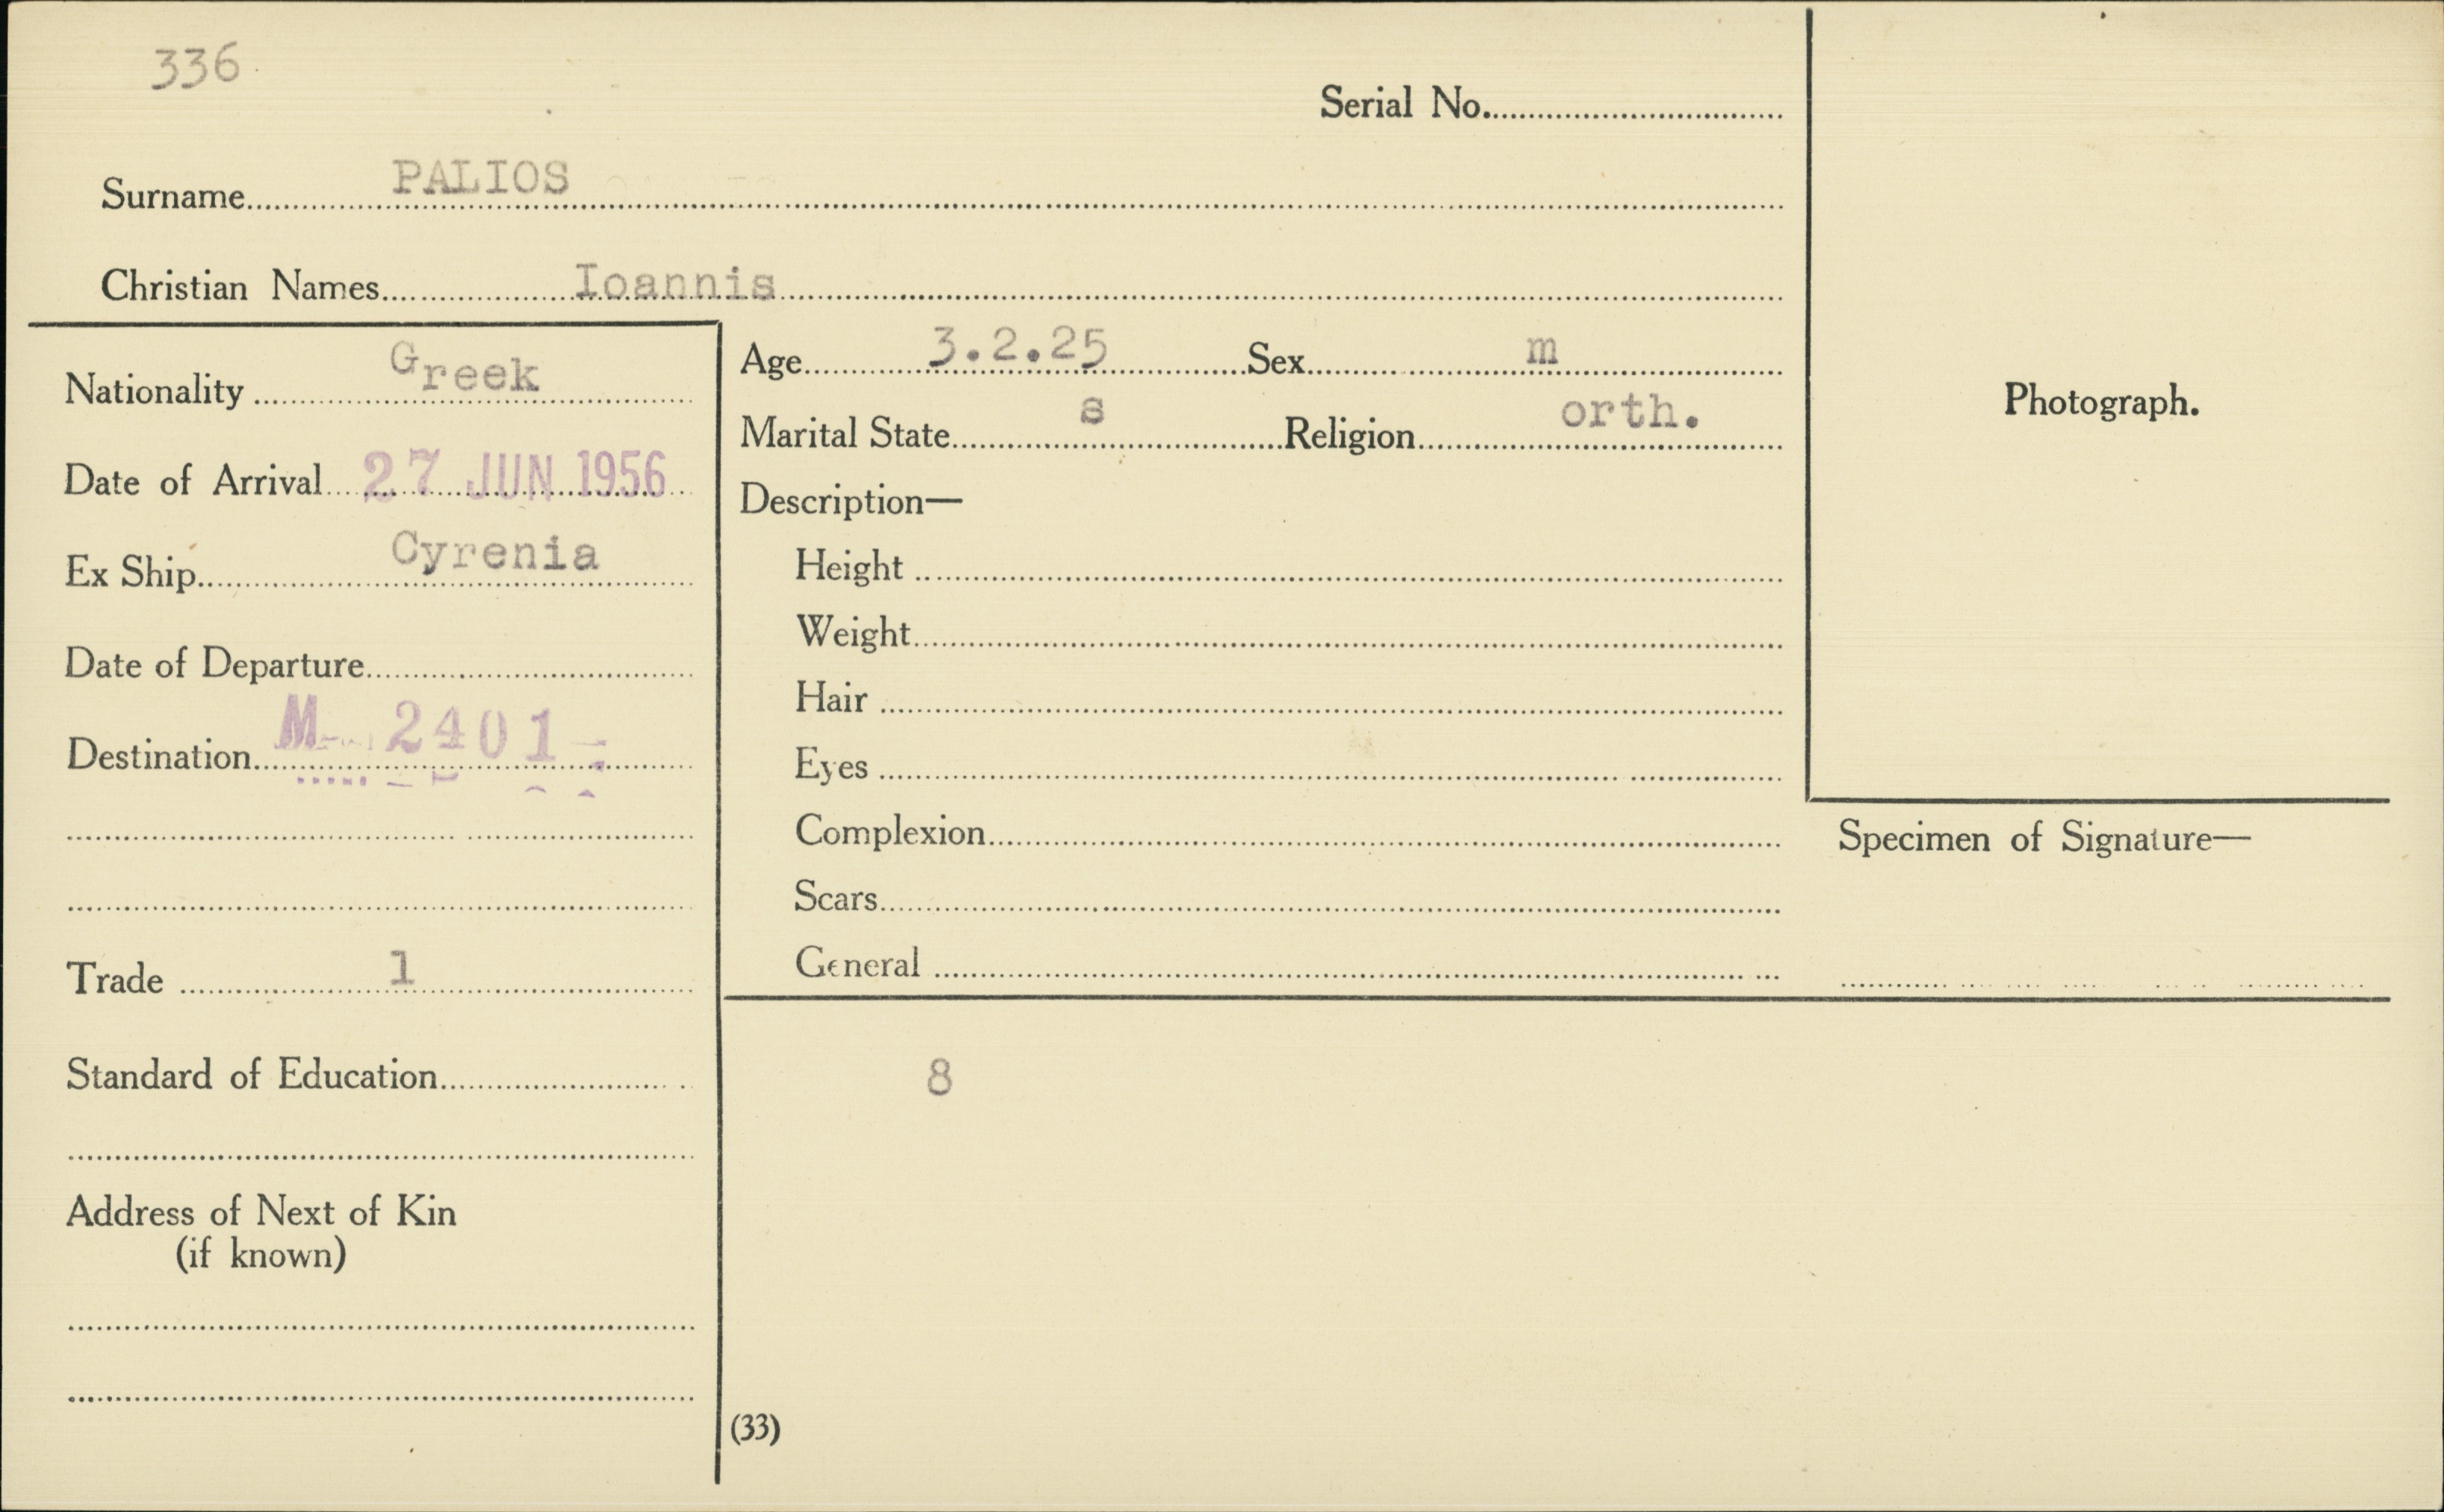 336
Serial No.
Surname PALIOS
Christian Names Ioannis
Nationality Greek
Date of Arrival 27 JUN 1956
Ex Ship Cyrenia
Date of Departure
Destination M 2401
Trade 1
Standard of Education
Address of Next of Kin
(if known)
Age 3.2.25 Sex m
Marital State s Religion orth.
Description—
Height
Weight
Hair
Eyes
Complexion
Scars
General
8
(33)
Photograph.
Specimen of Signature—